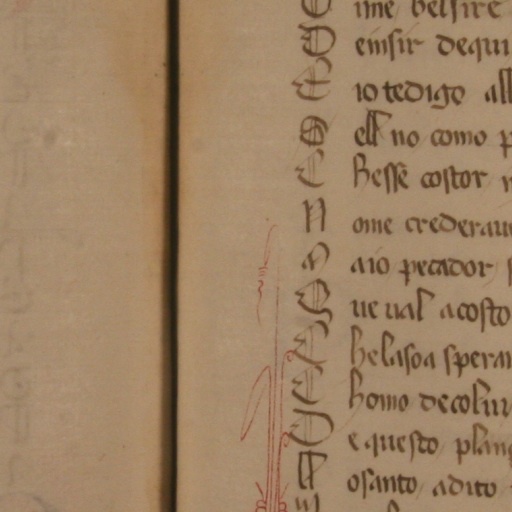 C ime belsire
O einsir dequi
E io tedigo all
Q ell no como p
C hesse costor
N ome crederau
M aio pecador
Q ue ual acosto
C he lasoa speran
C homo decolui
O e questo plan
T osanto adito